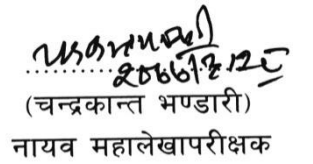 २०७७।३।२८
(चन्द्रकान्त भण्डारी)
नायव महालेखापरीक्षक